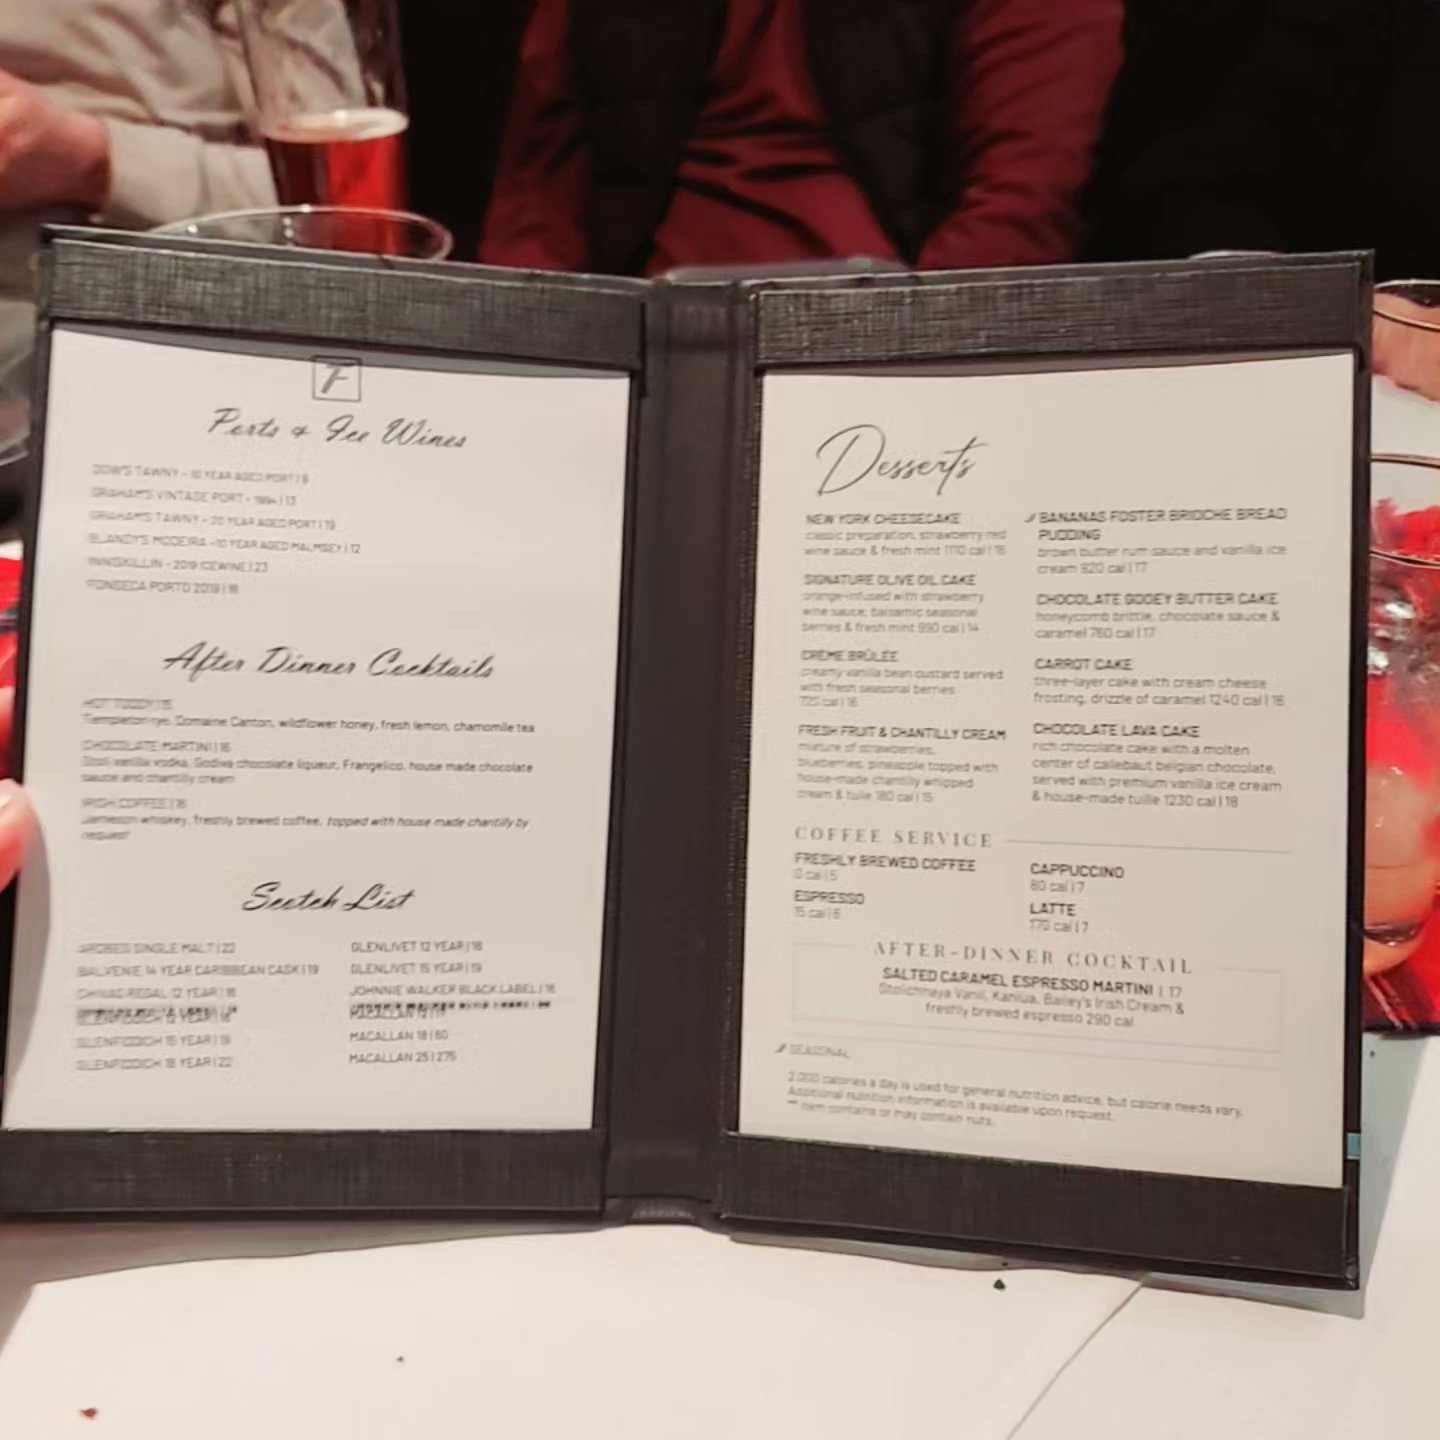 F
Ports & Ice Wines
DOW'S TAWNY - 10 YEAR AGED PORT | 9
GRAHAM'S VINTAGE PORT - 1994 | 13
GRAHAM'S TAWNY - 20 YEAR AGED PORT | 19
BLANDY'S MODEIRA -10 YEAR AGED MALMSEY | 12
INNISKILLIN - 2019 ICEWINE | 23
FONSECA PORTO 2019 | 16
After Dinner Cocktails
HOT TODDY | 15
Templeton rye, Domaine Canton, wildflower honey, fresh lemon, chamomile tea
CHOCOLATE MARTINI | 16
Stoli vanilla vodka, Godiva chocolate liqueur, Frangelico, house made chocolate
sauce and chantilly cream
IRISH COFFEE | 16
Jameson whiskey, freshly brewed coffee, topped with house made chantilly by
request
Scotch List
ARDBEG SINGLE MALT | 22
BALVENIE 14 YEAR CARIBBEAN CASK | 19
CHIVAS REGAL 12 YEAR | 16
GLENFIDDICH 12 YEAR | 16
GLENFIDDICH 15 YEAR | 19
GLENFIDDICH 18 YEAR | 22
GLENLIVET 12 YEAR | 18
GLENLIVET 15 YEAR | 19
JOHNNIE WALKER BLACK LABEL | 16
MACALLAN 12 |
MACALLAN 18 | 60
MACALLAN 25 | 275
Desserts
NEW YORK CHEESECAKE
classic preparation, strawberry red
wine sauce & fresh mint 1170 cal | 16
SIGNATURE OLIVE OIL CAKE
orange-infused with strawberry
wine sauce, balsamic seasonal
berries & fresh mint 990 cal | 14
CRÈME BRÛLÉE
creamy vanilla bean custard served
with fresh seasonal berries
725 cal | 16
FRESH FRUIT & CHANTILLY CREAM
mixture of strawberries,
blueberries, pineapple topped with
house-made chantilly whipped
cream & tuile 180 cal | 15
BANANAS FOSTER BRIOCHE BREAD
PUDDING
brown butter rum sauce and vanilla ice
cream 920 cal | 17
CHOCOLATE GOOEY BUTTER CAKE
honeycomb brittle, chocolate sauce &
caramel 760 cal | 17
CARROT CAKE
three-layer cake with cream cheese
frosting, drizzle of caramel 1240 cal | 16
CHOCOLATE LAVA CAKE
rich chocolate cake with a molten
center of callebaut belgian chocolate,
served with premium vanilla ice cream
& house-made tuille 1230 cal | 18
COFFEE SERVICE
FRESHLY BREWED COFFEE
0 cal | 5
ESPRESSO
15 cal | 6
CAPPUCCINO
80 cal | 7
LATTE
170 cal | 7
AFTER-DINNER COCKTAIL
SALTED CARAMEL ESPRESSO MARTINI | 17
Stolichnaya Vanil, Kahlua, Bailey's Irish Cream &
freshly brewed espresso 290 cal
SEASONAL
2,000 calories a day is used for general nutrition advice, but calorie needs vary.
Additional nutrition information is available upon request.
** Item contains or may contain nuts.